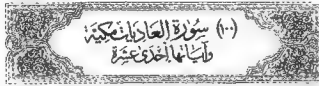 (١٠٠) سُورَة العَاديَات مَكيَّة
وَآيَاتُهَا إحْدَى عَشرَة